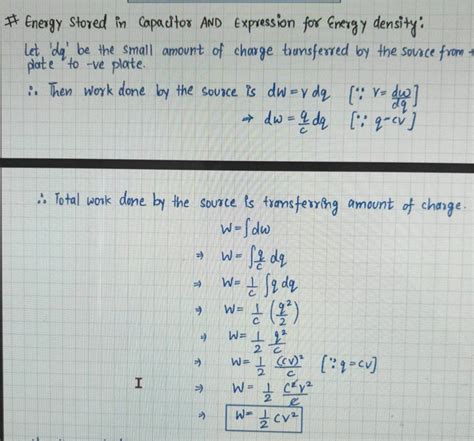 # Energy Stored in Capacitor AND Expression for Energy density:
Let 'dq' be the small amount of charge transferred by the source from +
plate to -ve plate.
∴ Then work done by the source is dw = v dq [∵ v = dw/dq]
⇒ dw = q/c dq [∵ q-cv]
∴ Total work done by the source is transferring amount of charge.
W = ∫dw
⇒ W = ∫q/c dq
⇒ W = 1/c ∫q dq
⇒ W = 1/c (q²/2)
⇒ W = 1/2 q²/c
⇒ W = 1/2 (cv)²/c [∵ q = cv]
⇒ W = 1/2 c²v²/c
⇒ W = 1/2 cv²